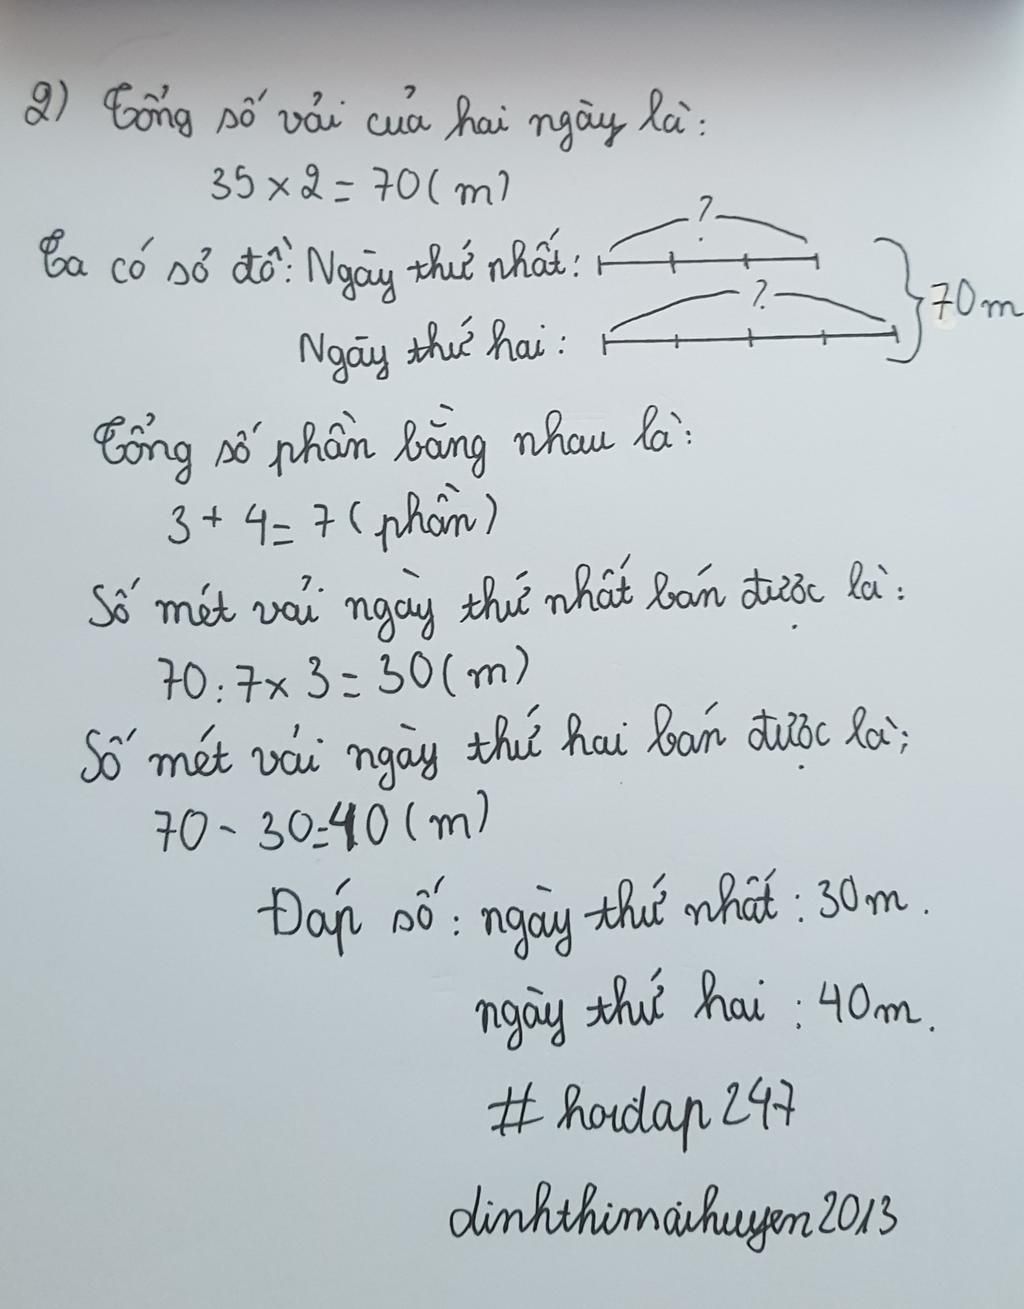 2) Tổng số vải của hai ngày là:
35 × 2 = 70 (m)
Ta có sơ đồ: Ngày thứ nhất: ?
Ngày thứ hai: ?
70m
Tổng số phần bằng nhau là:
3 + 4 = 7 (phần)
Số mét vải ngày thứ nhất bán được là:
70 : 7 × 3 = 30 (m)
Số mét vải ngày thứ hai bán được là:
70 - 30 = 40 (m)
Đáp số: ngày thứ nhất: 30m.
ngày thứ hai: 40m.
# hoidap247
dinhthimaihuyen2013